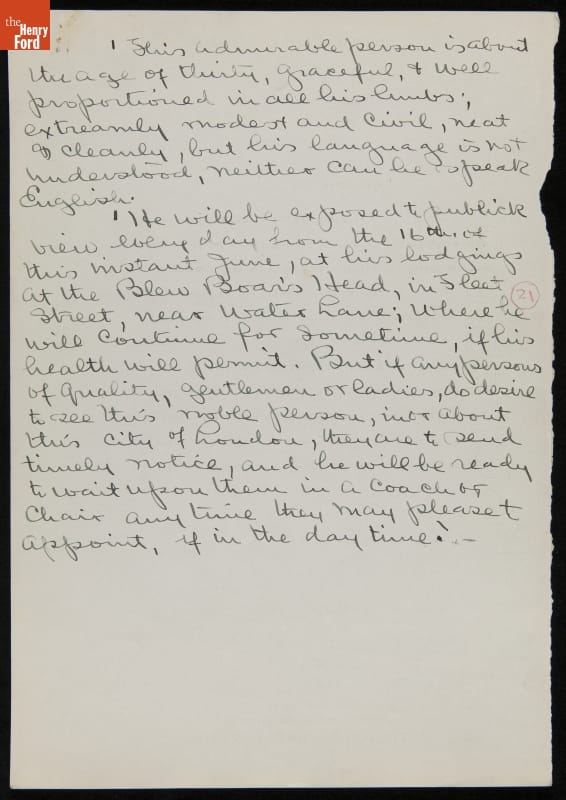 the
Henry
Ford
' This admirable person is about
the age of thirty, graceful, & well
proportioned in all his limbs;
extreamly modest and civil, neat
& cleanly, but his language is not
understood, neither can he speak
English.
' He will be exposed to publick
view every day from the 16th of
this instant June, at his lodgings
at the Blew Boar's Head, in Fleet
21
Street, near Water Lane; Where he
will continue for sometime, if his
health will permit. But if any persons
of quality, gentlemen or ladies, do desire
to see this noble person, in or about
this city of London, they are to send
timely notice, and he will be ready
to wait upon them in a coach or
chair any time they may please t
appoint, if in the day time.' —